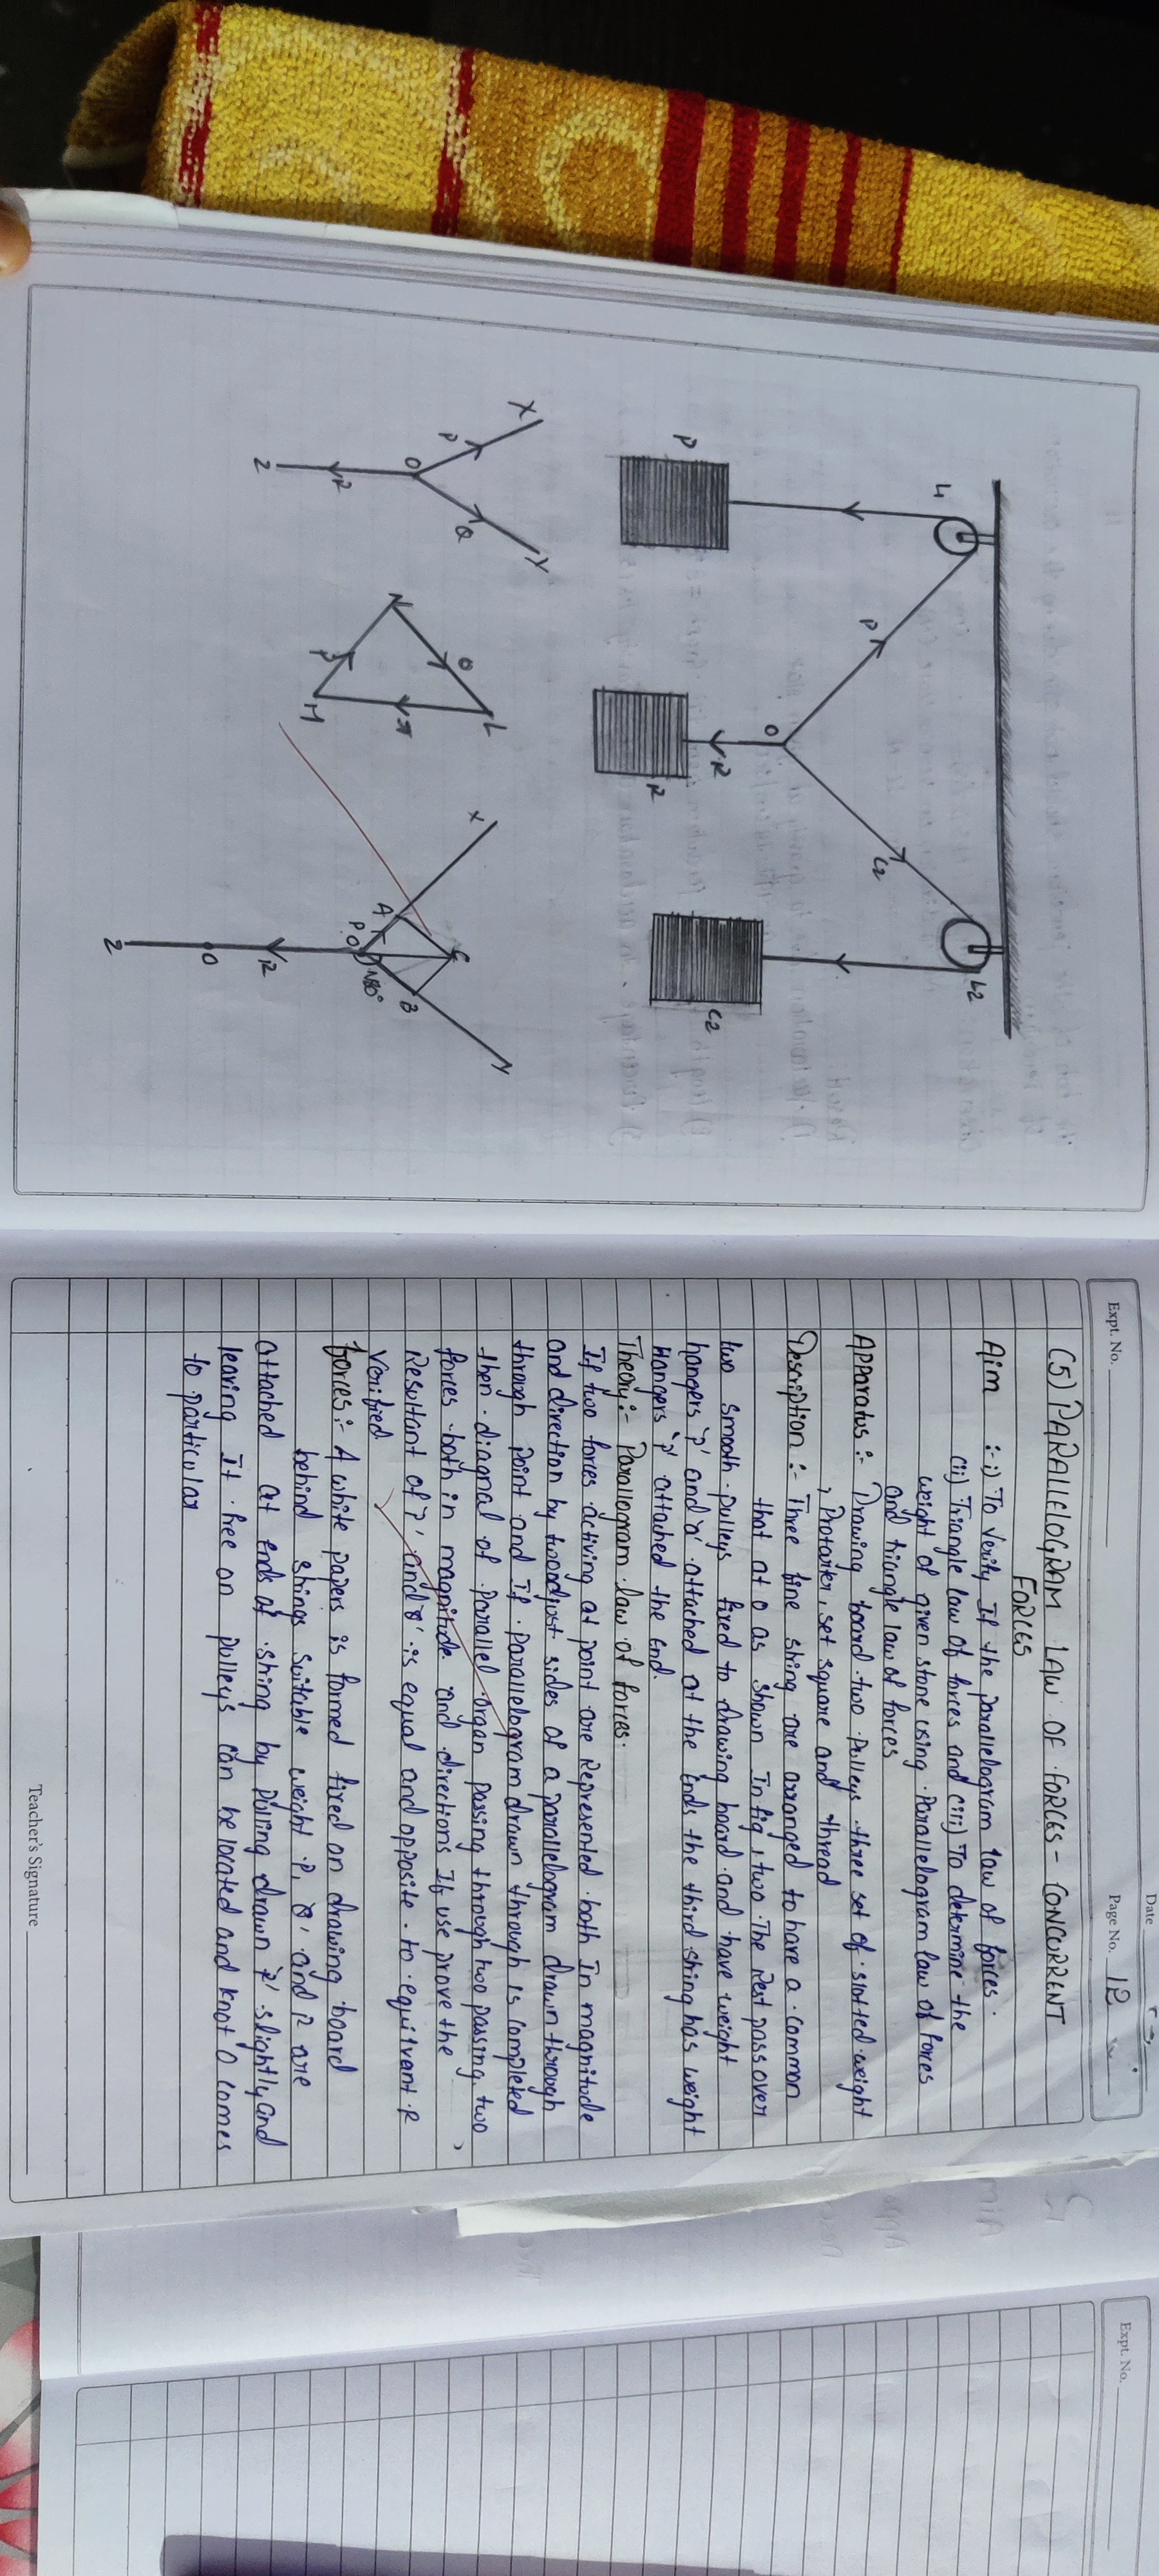 P
L1
P
O
R
R
Q
L2
Q
X
P
O
Q
Y
R
Z
K
Q
L
P
R
M
X
A
P
O
C
B
180°
Y
R
O
Z
Date
Expt. No.
Page No. 12
(5) PARALLELOGRAM LAW OF FORCES - CONCURRENT
FORCES
Aim :- i) To Verify If the parallelogram law of forces.
(ii) Triangle law of forces and (iii) To determine the
weight of given stone using parallelogram law of forces
and triangle law of forces
Apparatus :- Drawing board two Pulleys three set of slotted weight
, Protacter, set square and thread
Description :- Three fine string are arranged to have a common
that at O as shown In fig, two The Rest pass over
two smooth pulleys fixed to drawing board and have weight
hangers 'p' and 'Q' attached at the Ends the third string has weight
Hangers 'p' attached the End.
Theory :- Parallogram law of forces.
If two forces activing at point are Represented both In magnitude
and direction by two adjust sides of a parallelogram drawn through
through point and If parallelogram drawn through is completed
then diagnal of parallel organ passing through two passing two
forces both in magnitude and directions If use prove the
Resultant of 'P' and 'Q' is equal and opposite to equilvent R
verified
forces :- A white papers is formed fixed on drawing board
behind strings suitable weight P, Q' and R are
attached at ends of string by pulling drawn 'R' slightly and
leaving It free on pulleys can be located and knot O comes
to particular
Teacher's Signature
Expt. No.